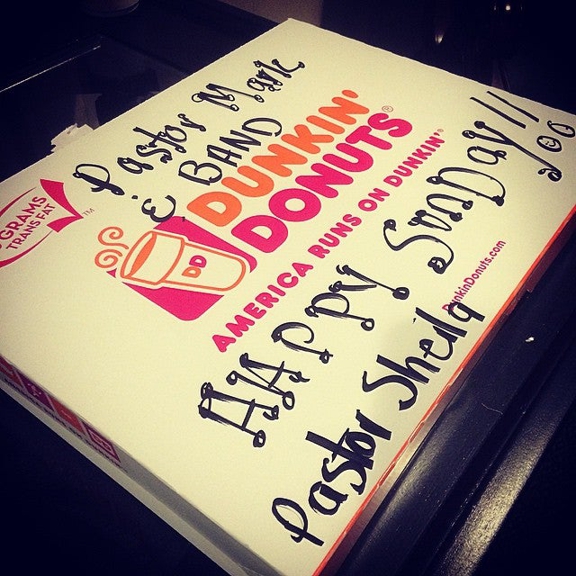 Pastor Mark
& BAND
DUNKIN'
DONUTS®
AMERICA RUNS ON DUNKIN'®
GRAMS
TRANS FAT
TM
DD
HAPPY SUNDay!!
Pastor Sheila
DunkinDonuts.com